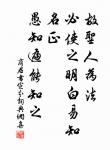 故聖人為法
必使之明白易知
名正
愚知遍能知之
商君書定分